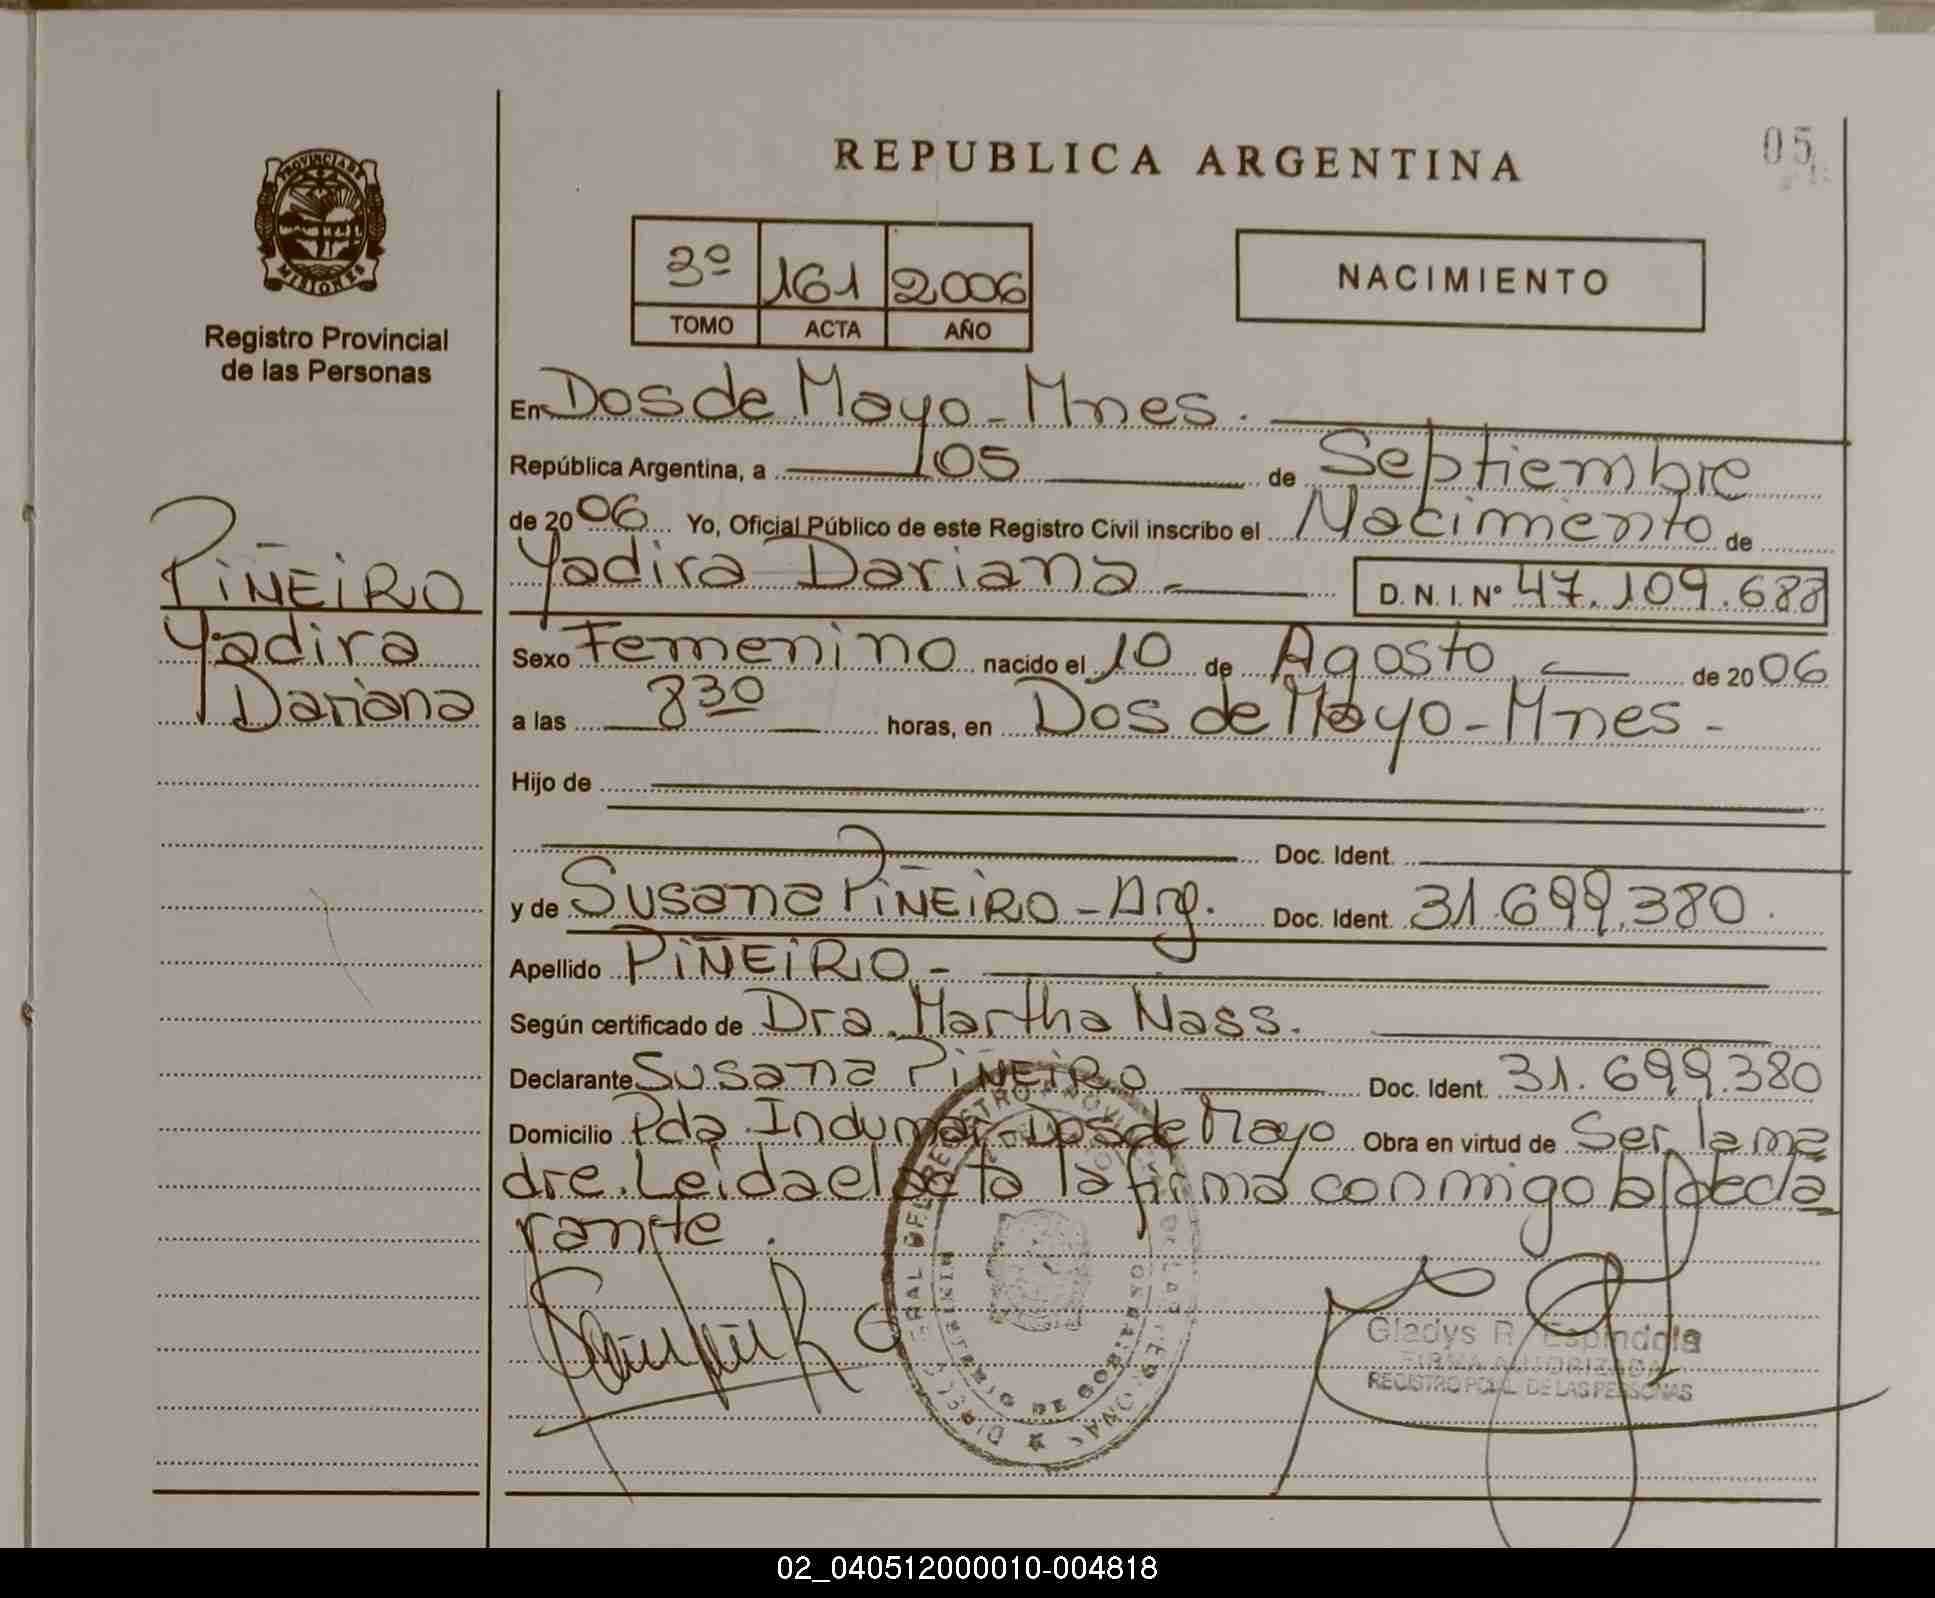 REPUBLICA ARGENTINA
05
PROVINCIA DE
MISIONES
Registro Provincial
de las Personas
3º 161 2006
TOMO ACTA AÑO
NACIMIENTO
PIÑEIRO
Yadira
Dariana
En Dos de Mayo - Mnes.
República Argentina, a 05 de Septiembre
de 2006 Yo, Oficial Público de este Registro Civil inscribo el Nacimiento de
Yadira Dariana D.N.I. Nº 47.109.688
Sexo Femenino nacido el 10 de Agosto de 2006
a las 8 30 horas, en Dos de Mayo - Mnes -
Hijo de
Doc. Ident.
y de Susana PIÑEIRO - Arg. Doc. Ident. 31.699.380.
Apellido PIÑEIRO -
Según certificado de Dra. Martha Nass.
Declarante Susana PIÑEIRO Doc. Ident. 31.699.380
Domicilio Pda Indumar - Dos de Mayo Obra en virtud de Ser la ma
dre. Leida el acta la firma conmigo la decla
rante.
MINISTERIO DE GOBIERNO
Gladys R. Espindola
FIRMA AUTORIZADA
REGISTRO PCIAL. DE LAS PERSONAS
02_040512000010-004818